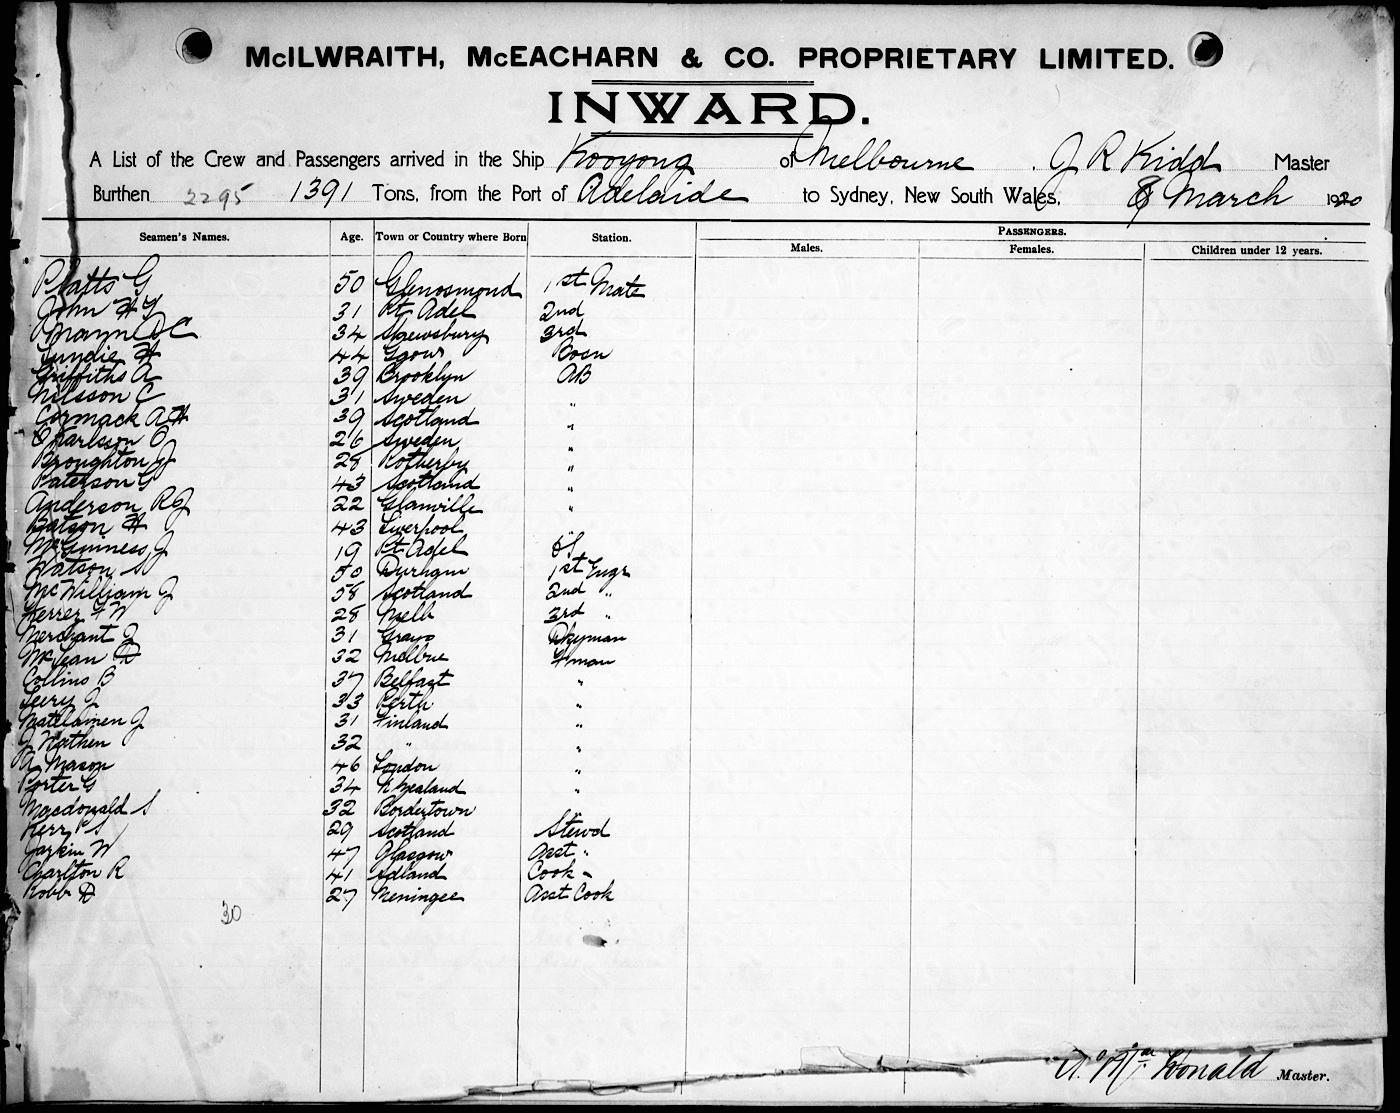 McILWRAITH, McEACHARN & CO. PROPRIETARY LIMITED.
INWARD.
A List of the Crew and Passengers arrived in the Ship Kooyong of Melbourne J R Kidd Master
Burthen 2295 1391 Tons, from the Port of Adelaide to Sydney, New South Wales, 8 March 1920
PASSENGERS.
Seamen's Names. Age. Town or Country where Born Station. Males. Females. Children under 12 years.
Platts G 50 Glenosmond 1st Mate
John H Y 31 Pt Adel 2nd
Mayne D C 34 Shrewsbury 3rd
Lundie H 44 Bosn
Griffiths A 39 Brooklyn AB
Nilsson C 31 Sweden "
Cormack A H 39 Scotland "
Charlsson O 26 Sweden "
Broughton J 28 Rotherby "
Paterson G 43 Scotland "
Anderson R J 22 Glanville "
Batson H 43 Liverpool
McGuinness J 19 Pt Adel OS
Watson S 50 Durham 1st Engr
McWilliam J 58 Scotland 2nd "
Ferrer F W 28 Melb 3rd "
Merchant J 31 Grays Dkyman
McLean D 32 Melbne Fman
Collins B 37 Belfast "
Leery J 33 Perth "
Matilainen J 31 Finland "
J Nathen 32 " "
A Mason 46 London "
Porter G 34 N Zealand "
Macdonald S 32 Bordertown
Kerr P S 29 Scotland Stewd
Larkin W 47 Glasgow Asst "
Charlton R 41 Adland Cook -
Robb D 27 Meningee Asst Cook
30
A. McDonald Master.